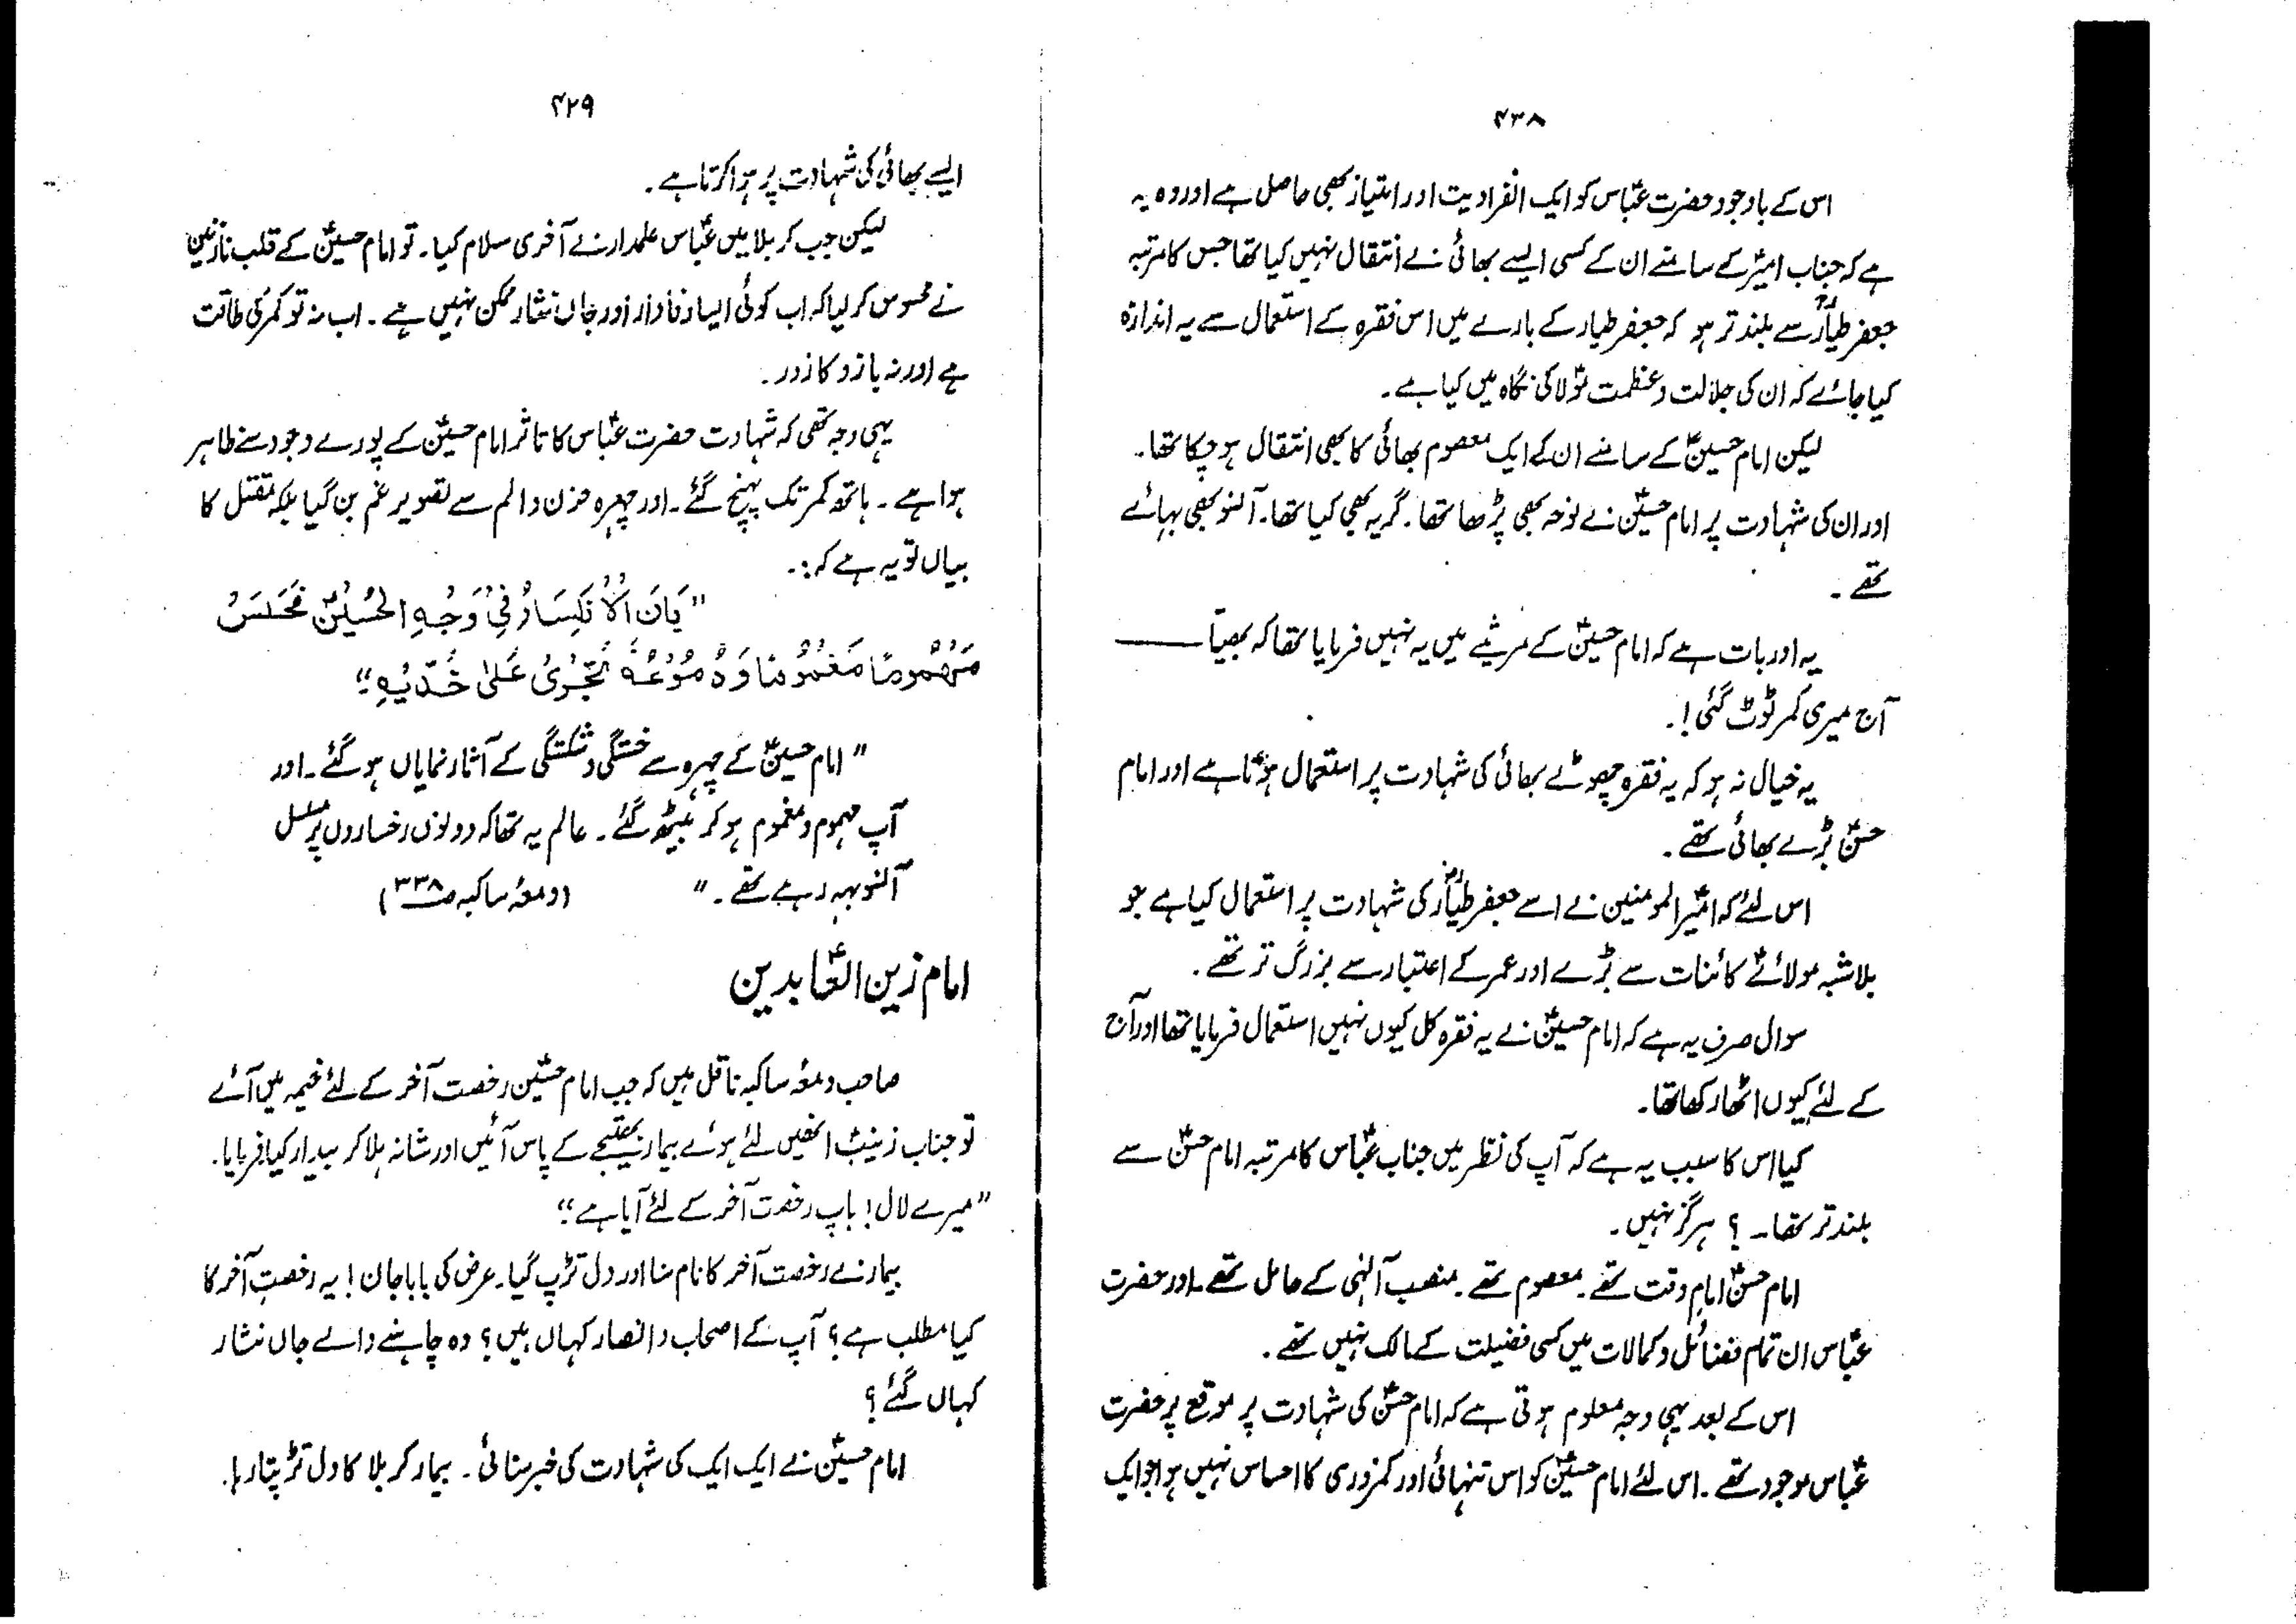 ۴۳۸
اس کے باوجود حضرت عباسؑ کو ایک انفرادیت اور امتیاز بھی حاصل ہے اور وہ یہ
ہے کہ جناب امیرؑ کے سامنے ان کے کسی ایسے بھائی نے انتقال نہیں کیا تھا جس کا مرتبہ
جعفر طیارؑ سے بلند تر ہو کہ جعفر طیار کے بارے میں اس فقرہ کے استعمال سے یہ اندازہ
کیا جائے کہ ان کی جلالت و عظمت مولاؑ کی نگاہ میں کیا ہے۔
لیکن امام حسینؑ کے سامنے ان کے ایک معصوم بھائی کا بھی انتقال ہو چکا تھا۔
اور ان کی شہادت پر امام حسینؑ نے نوحہ بھی پڑھا تھا۔ گریہ بھی کیا تھا۔ آنسو بھی بہائے
تھے۔
یہ اور بات ہے کہ امام حسینؑ کے مرثیے میں یہ نہیں فرمایا تھا کہ بھیّا ——
آج میری کمر ٹوٹ گئی!۔
یہ خیال نہ ہو کہ یہ فقرہ چھوٹے بھائی کی شہادت پر استعمال ہوتا ہے اور امام
حسنؑ بڑے بھائی تھے۔
اس لئے کہ امیرؑالمومنین نے اسے جعفر طیارؑ کی شہادت پر استعمال کیا ہے جو
بلاشبہ مولائے کائنات سے بڑے اور عمر کے اعتبار سے بزرگ تر تھے۔
سوال صرف یہ ہے کہ امام حسینؑ نے یہ فقرہ کل کیوں نہیں استعمال فرمایا تھا اور آج
کے لئے کیوں اٹھا رکھا تھا۔
کیا اس کا سبب یہ ہے کہ آپ کی نظر میں جناب عباسؑ کا مرتبہ امام حسنؑ سے
بلند تر تھا۔ ؟ ہرگز نہیں۔
امام حسنؑ امام وقت تھے۔ معصوم تھے۔ منصب آلٰہی کے حامل تھے۔ اور حضرت
عباسؑ ان تمام فضائل و کمالات میں کسی فضیلت کے مالک نہیں تھے۔
اس کے بعد یہی وجہ معلوم ہوتی ہے کہ امام حسنؑ کی شہادت پر موقع پر حضرت
عباسؑ موجود تھے۔ اس لئے امام حسینؑ کو اس تنہائی اور کمزوری کا احساس نہیں ہوا جو ایک
۴۲۹
ایسے بھائی کی شہادت پر ہوا کرتا ہے۔
لیکن جب کربلا میں عباسؑ علمدار نے آخری سلام کیا۔ تو امام حسینؑ کے قلب نازنین
نے محسوس کر لیا کہ اب کوئی ایسا وفادار اور جاں نثار ممکن نہیں ہے۔ اب نہ تو کمر کی طاقت
ہے اور نہ بازو کا زور۔
یہی وجہ تھی کہ شہادت حضرت عباسؑ کا تاثر امام حسینؑ کے پورے وجود سے ظاہر
ہوا ہے۔ ہاتھ کمر تک پہنچ گئے۔ اور چہرہ حزن و الم سے تصویر غم بن گیا بلکہ مقتل کا
بیاں تو یہ ہے کہ:۔
"بَانَ الْاِنْکِسَارُ فِیْ وَجْہِ الْحُسَیْنِؑ فَجَلَسَ
مَہْمُوْمًا مَغْمُوْمًا وَدُمُوْعُہٗ تَجْرِیْ عَلٰی خَدَّیْہِ"
"امام حسینؑ کے چہرہ سے خستگی و شکستگی کے آثار نمایاں ہو گئے۔ اور
آپ مہموم و مغموم ہو کر بیٹھ گئے۔ عالم یہ تھا کہ دونوں رخساروں پر مسلسل
آنسو بہہ رہے تھے۔" (دمعۂ ساکبہ ص۳۳۸)
امام زین العابدینؑ
صاحب دمعۂ ساکبہ ناقل ہیں کہ جب امام حسینؑ رخصت آخر کے لئے خیمہ میں آئے
تو جناب زینبؑ انھیں لئے ہوئے بیمار بھتیجے کے پاس آئیں اور شانہ ہلا کر بیدار کیا فرمایا۔
"میرے لال! باپ رخصت آخر کے لئے آیا ہے"
بیمار نے رخصت آخر کا نام سنا اور دل تڑپ گیا۔ عرض کی بابا جان! یہ رخصتِ آخر کا
کیا مطلب ہے؟ آپ کے اصحاب و انصار کہاں ہیں؟ وہ چاہنے والے جاں نثار
کہاں گئے؟
امام حسینؑ نے ایک ایک کی شہادت کی خبر سنائی۔ بیمار کربلا کا دل تڑپتا رہا۔